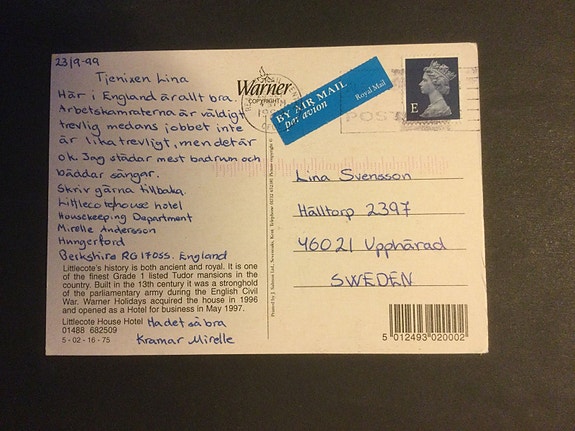 23/9-99
Tjenixen Lina
Här i England är allt bra.
Arbetskamraterna är väldigt
trevlig medans jobbet inte
är lika trevligt, men det är
ok. Jag städar mest badrum och
bäddar sängar.
Skriv gärna tillbaka.
Littlecote house hotel
Housekeeping Department
Mirelle Andersson
Hungerford
Berkshire RG17 0SS. England
Littlecote's history is both ancient and royal. It is one
of the finest Grade 1 listed Tudor mansions in the
country. Built in the 13th century it was a stronghold
of the parliamentary army during the English Civil
War. Warner Holidays acquired the house in 1996
and opened as a Hotel for business in May 1997.
Littlecote House Hotel
01488 682509
5 - 02 - 16 - 75
Ha det så bra
Kramar Mirelle
Warner
COPYRIGHT
BY AIR MAIL
par avion
Royal Mail
E
POST
Printed by J. Salmon Ltd., Sevenoaks, Kent.
Lina Svensson
Hälltorp 2397
46021 Upphärad
SWEDEN
5 012493 020002